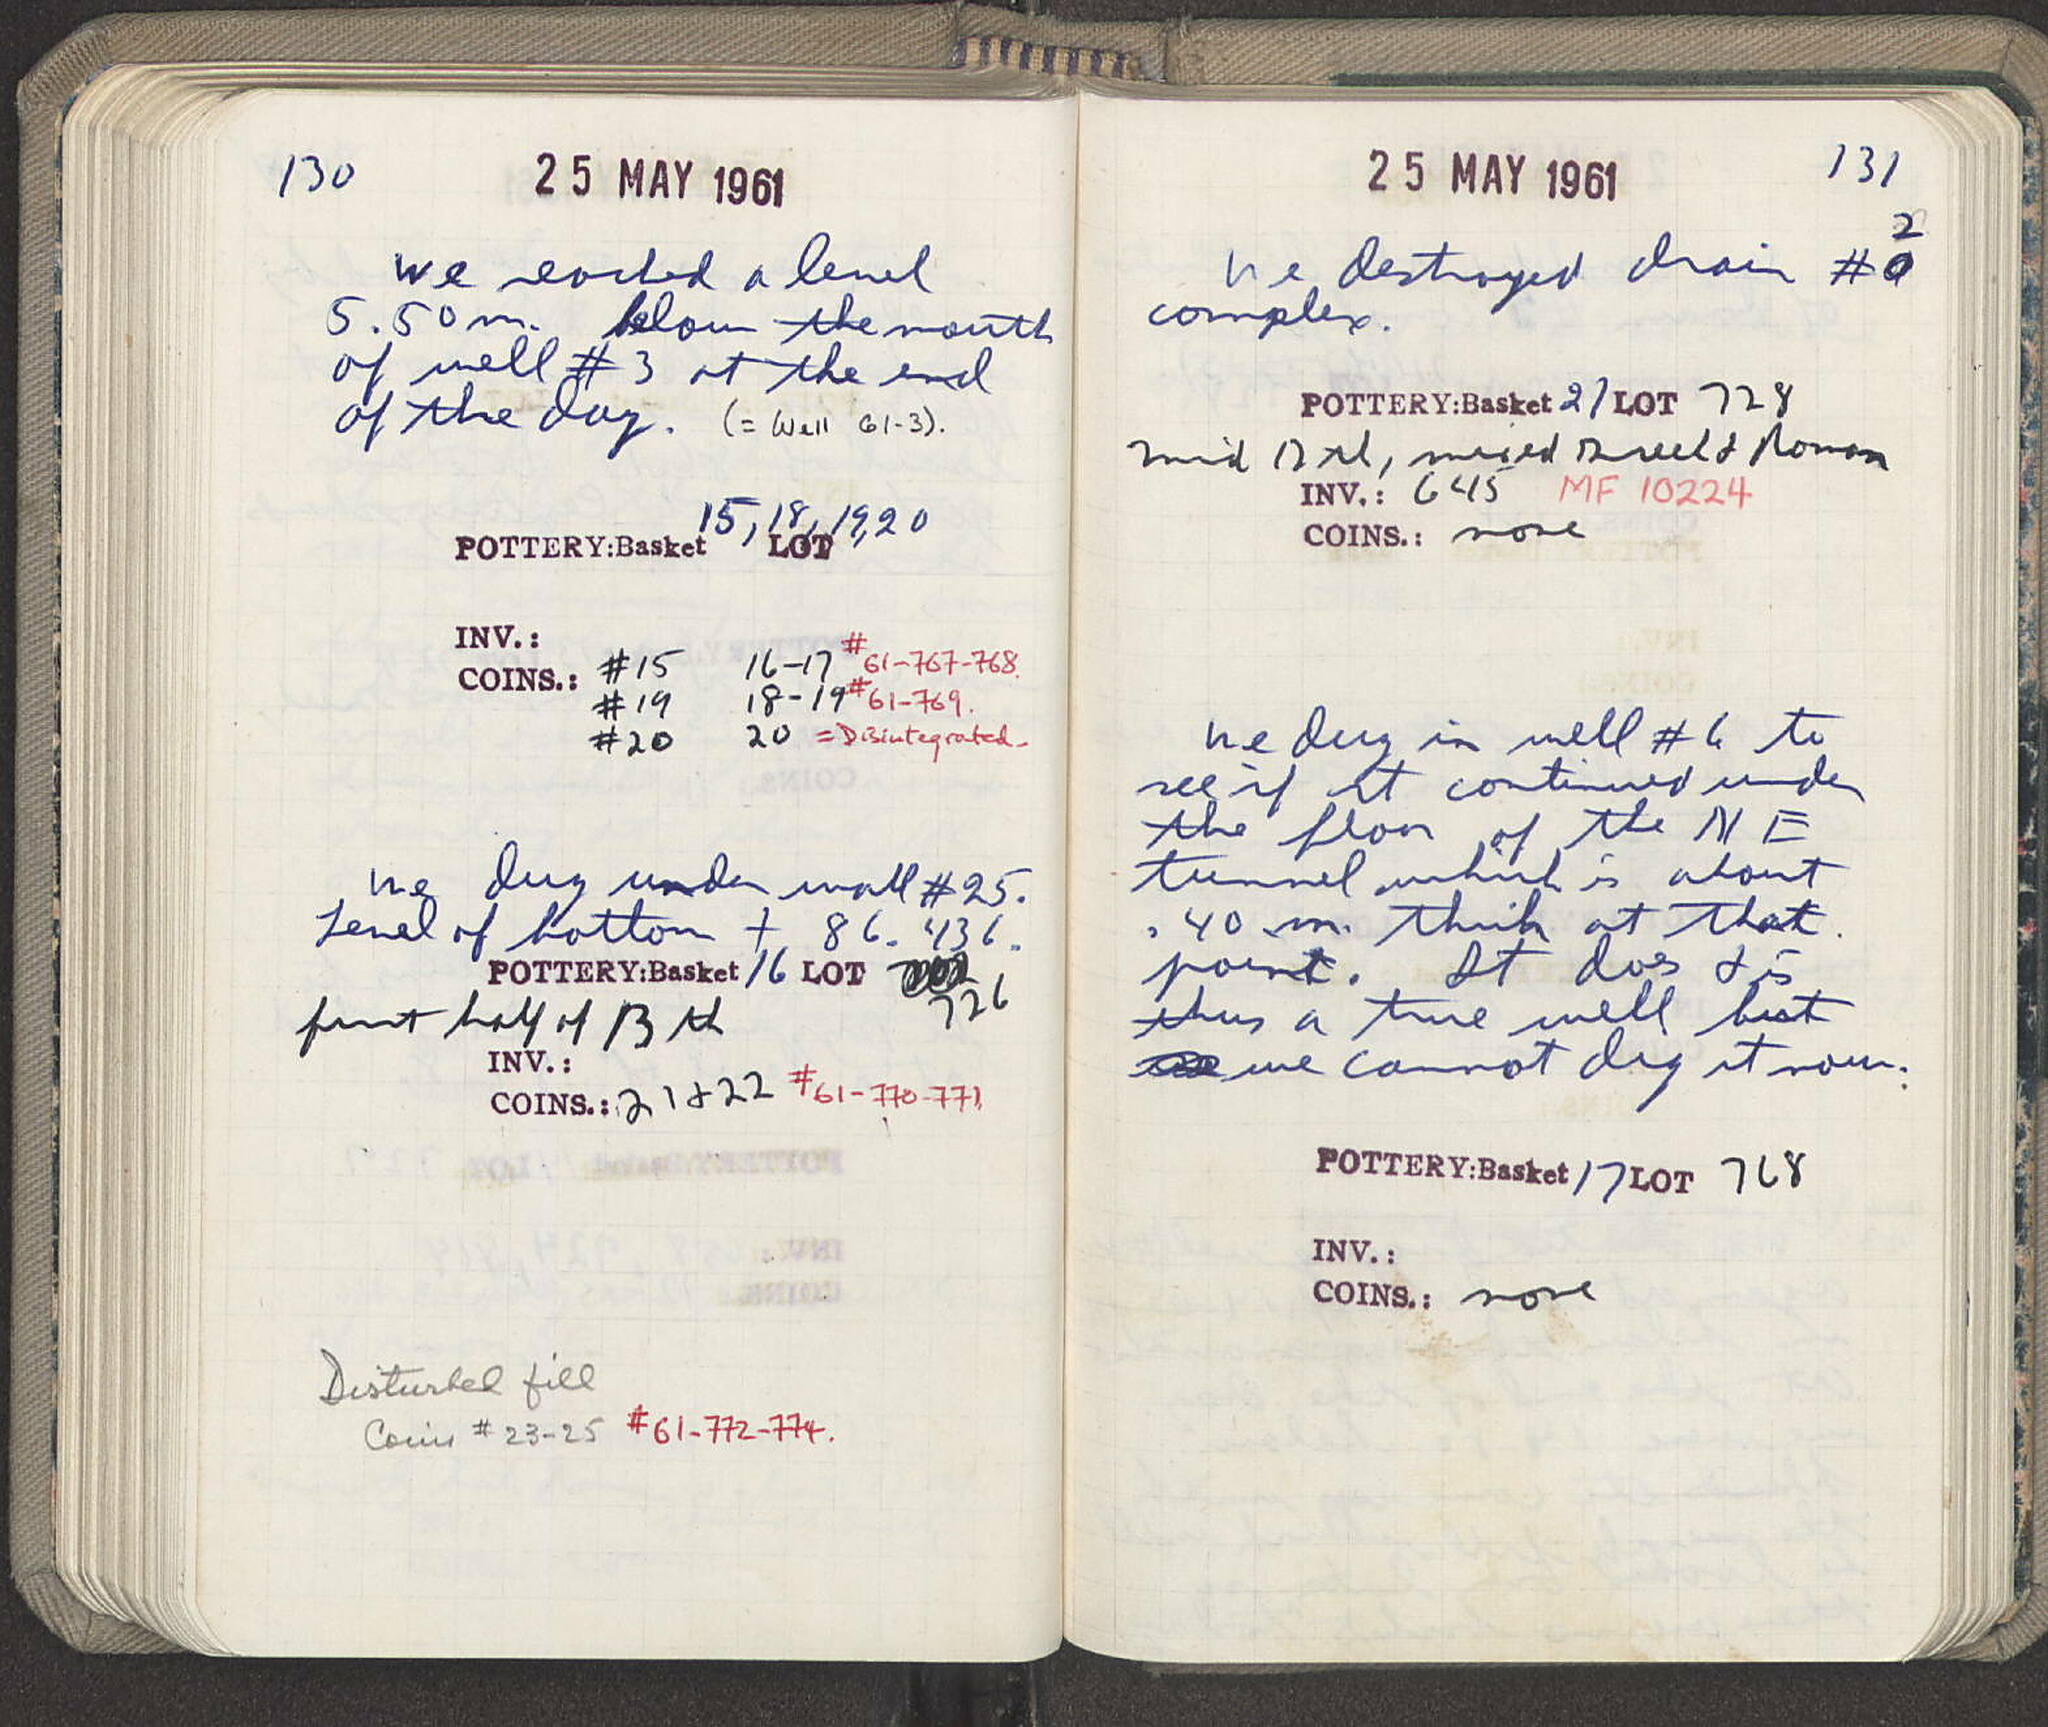 130
25 MAY 1961
We reached a level
5.50 m. below the mouth
of well #3 at the end
of the day. (= Well 61-3).
15, 18, 19, 20
POTTERY:Basket LOT
INV.:
COINS.: #15 16-17 #61-767-768.
#19 18-19 #61-769.
#20 20 = Disintegrated-
We dug under wall #25.
Level of bottom + 86.436.
POTTERY:Basket 16 LOT
726
first half of 13 th
INV.:
COINS.: 21 & 22 #61-770-771.
Disturbed fill
Coins #23-25 #61-772-774.
25 MAY 1961
131
2
We destroyed drain #
complex.
POTTERY:Basket 21 LOT 728
mid 12 th, mixed Greek & Roman
INV.: 645 MF 10224
COINS.: none
We dug in well #6 to
see if it continued under
the floor of the N E
tunnel which is about
.40 m. thick at that
point. It does & is
thus a true well but
we cannot dig it now.
POTTERY:Basket 17 LOT 768
INV.:
COINS.: none